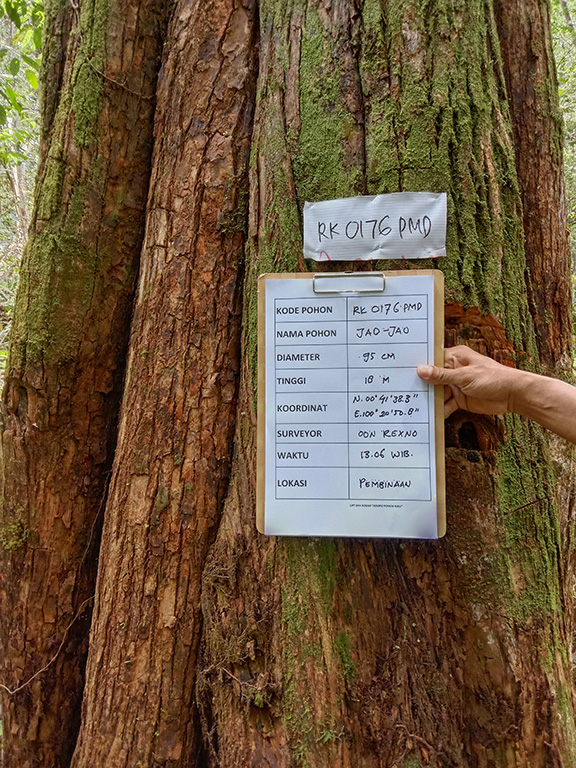 RK 0176 PMD
KODE POHON RK 0176 PMD
NAMA POHON JAO-JAO
DIAMETER 95 CM
TINGGI 18 M
KOORDINAT N. 00° 41' 38.3"
E.100° 20' 50.8"
SURVEYOR ODN REXNO
WAKTU 13.06 WIB.
LOKASI PEMBINAAN